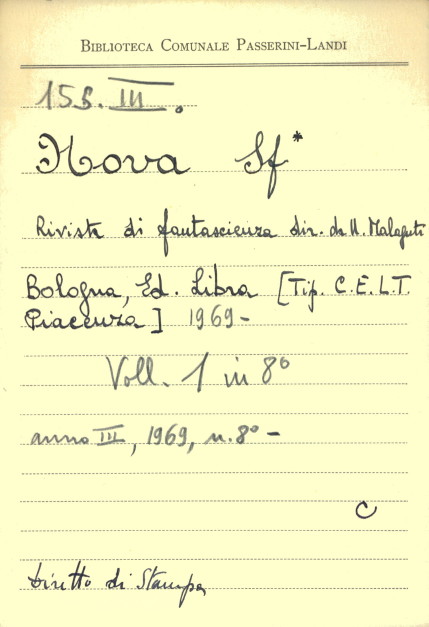 BIBLIOTECA COMUNALE PASSERINI-LANDI
153. III.
Nova Sf*
Rivista di fantascienza dir. da U. Malaguti
Bologna, Ed. Libra [Tip. C.E.L.T.
Piacenza] 1969-
Voll. 1 in 8º
anno III, 1969, n. 8º -
C
Diritto di Stampa